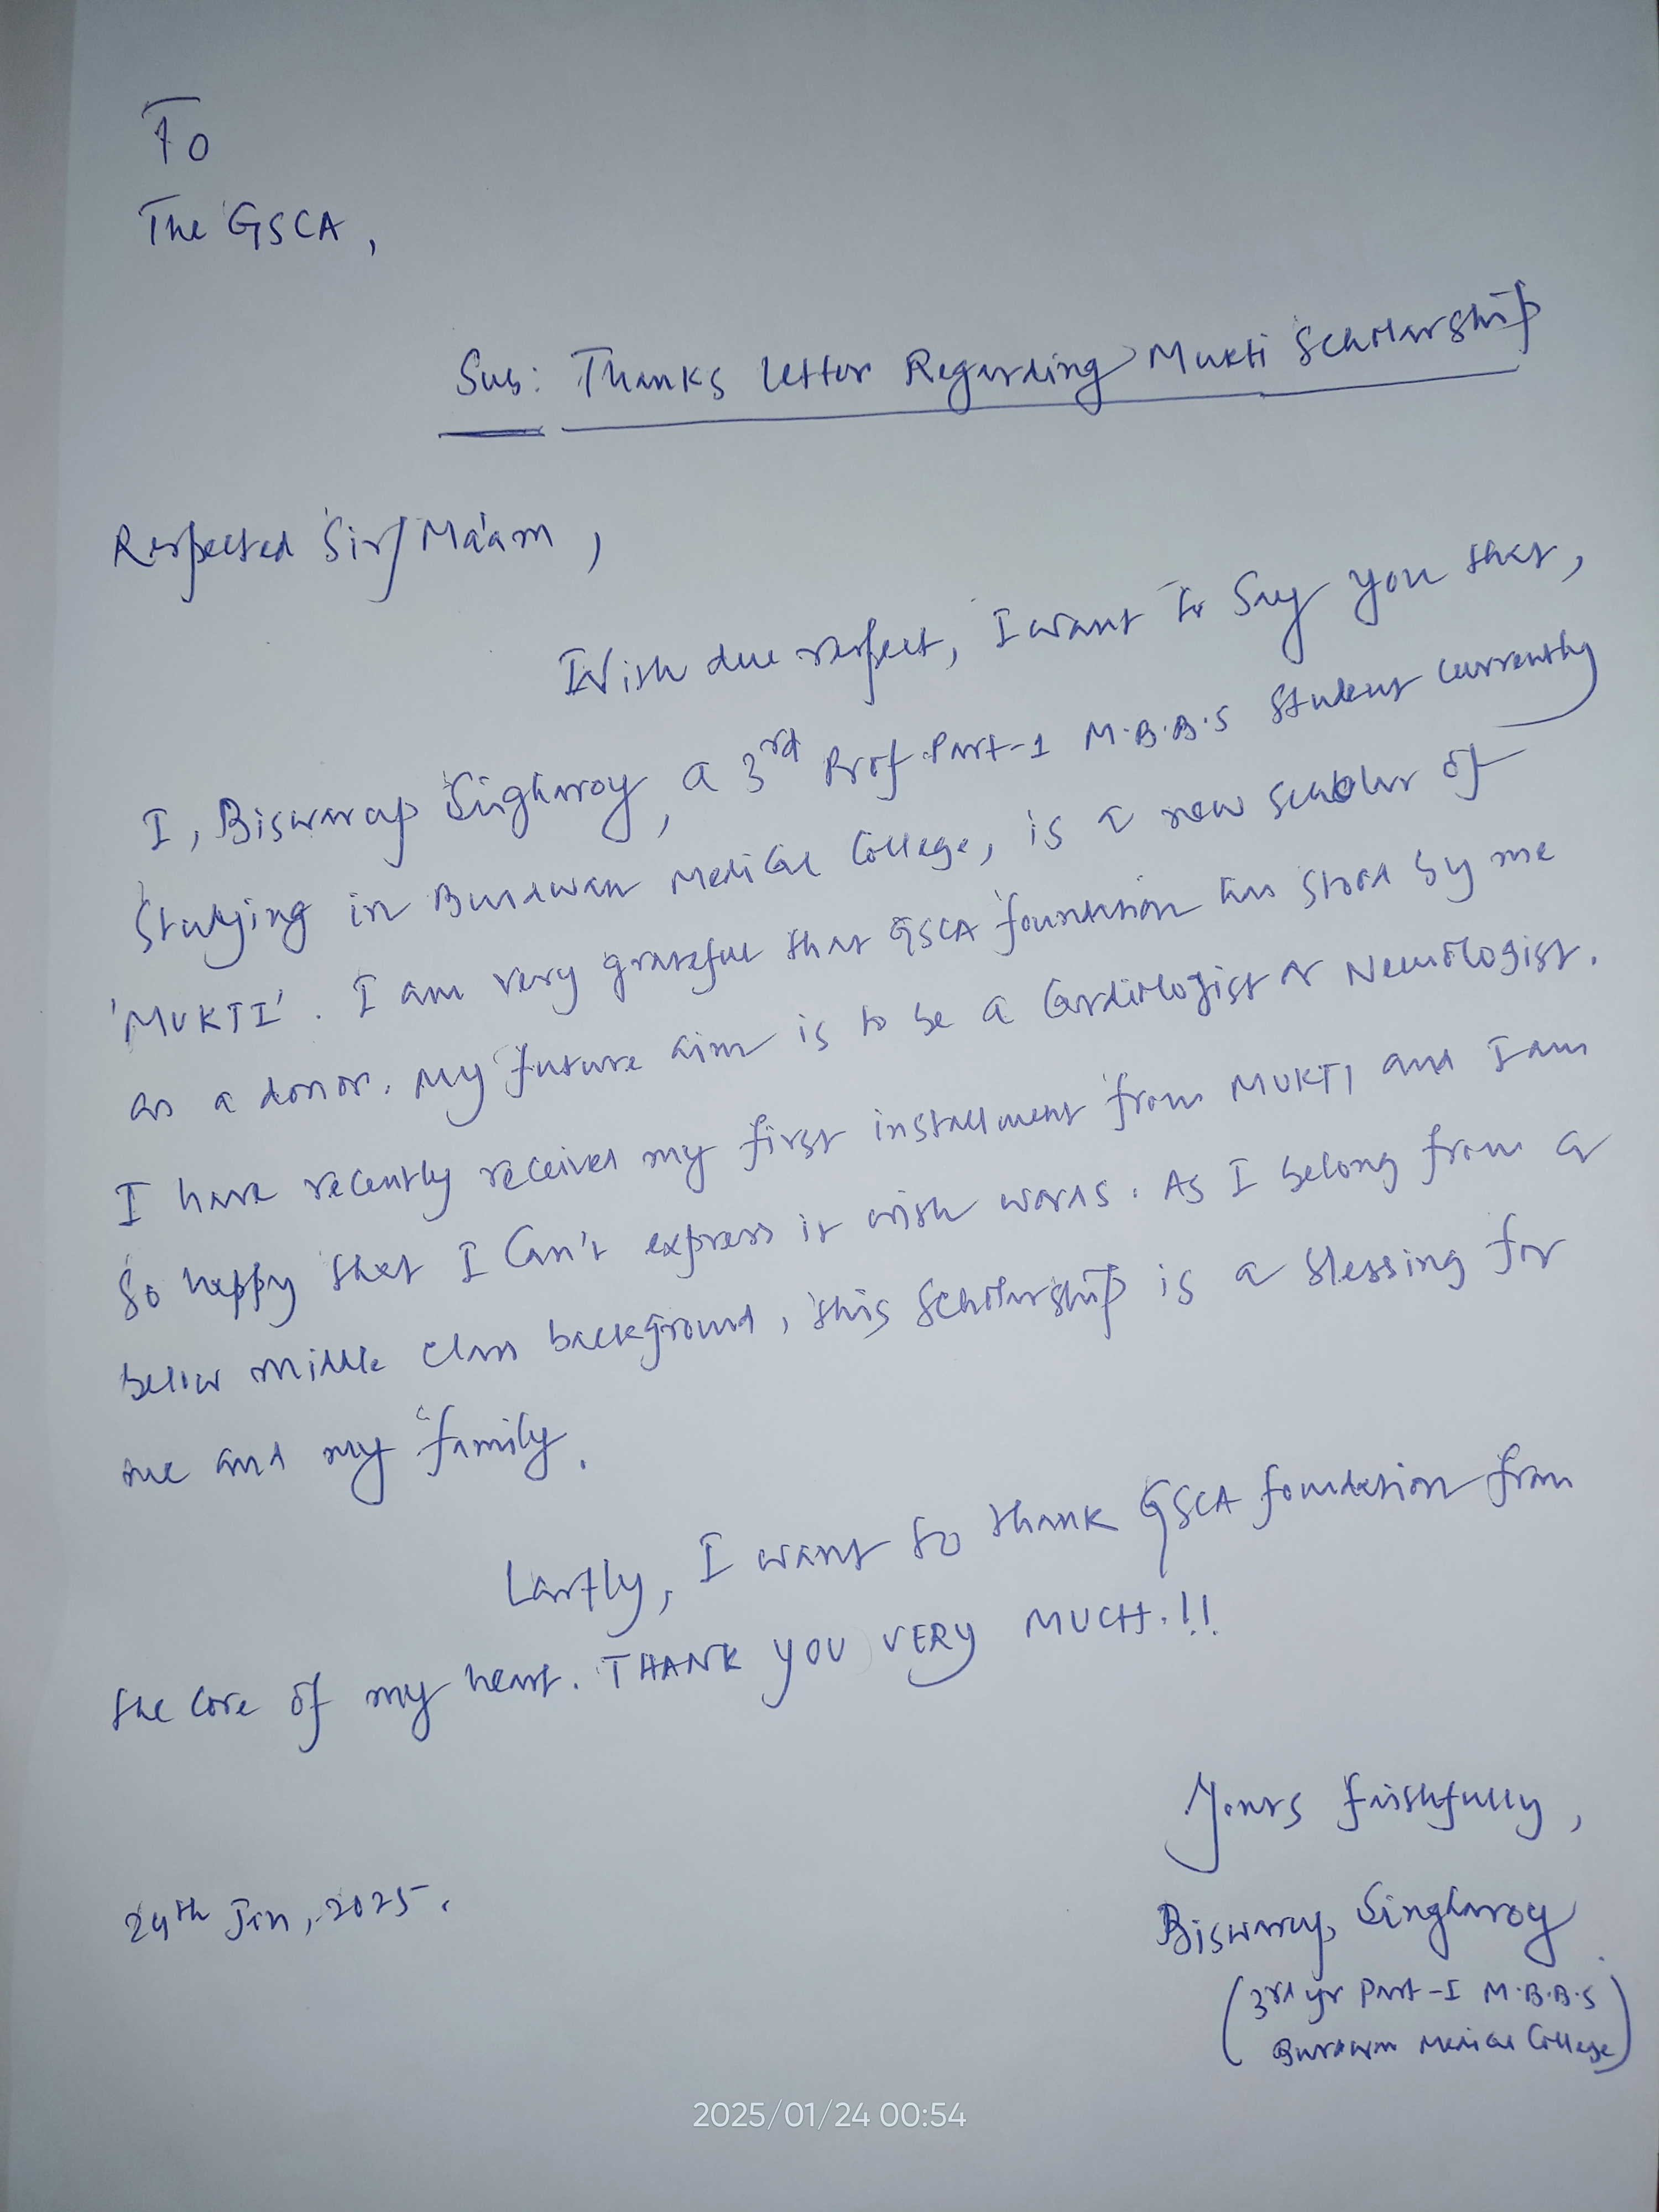 To
The GSCA,
Sub: Thanks Letter Regarding Mukti Scholarship
Respected Sir/Ma'am,
With due respect, I want to Say you that,
I, Biswarup Singharoy, a 3rd Prof Part-1 M.B.B.S Student currently
Studying in Burdwan Medical College, is a new scholar of
'MUKTI'. I am very grateful that GSCA foundation has stood by me
as a donor. My future aim is to be a Cardiologist or Neurologist.
I have recently received my first installment from MUKTI and I am
So happy that I Can't express it with words. As I belong from a
below middle class background, this Scholarship is a blessing for
me and my family.
Lastly, I want to thank GSCA foundation from
the core of my heart. THANK YOU VERY MUCH.!!
Yours faithfully,
24th Jan, 2025.
Biswarup Singharoy
(3rd yr Part-I M.B.B.S
Burdwan Medical College)
2025/01/24 00:54